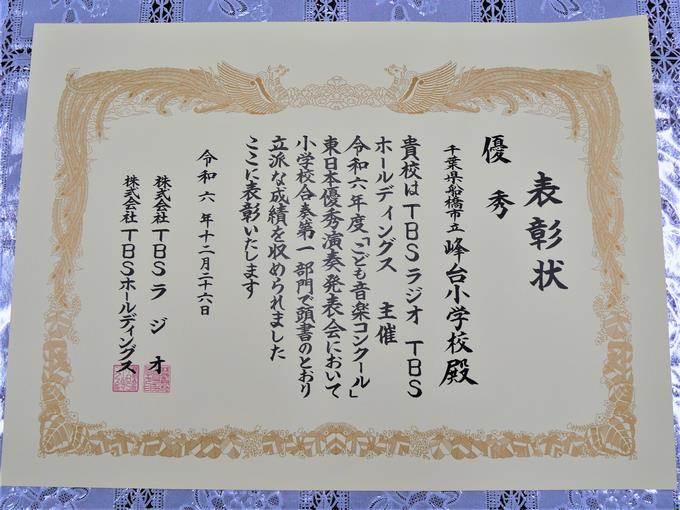 表彰状
優秀
千葉県船橋市立 峰台小学校殿
貴校はTBSラジオ TBS
ホールディングス 主催
令和六年度「こども音楽コンクール」
東日本優秀演奏発表会において
小学校合奏第一部門で頭書のとおり
立派な成績を収められました
ここに表彰いたします
令和六年十二月二十六日
株式会社TBSラジオ
株式会社TBSホールディングス